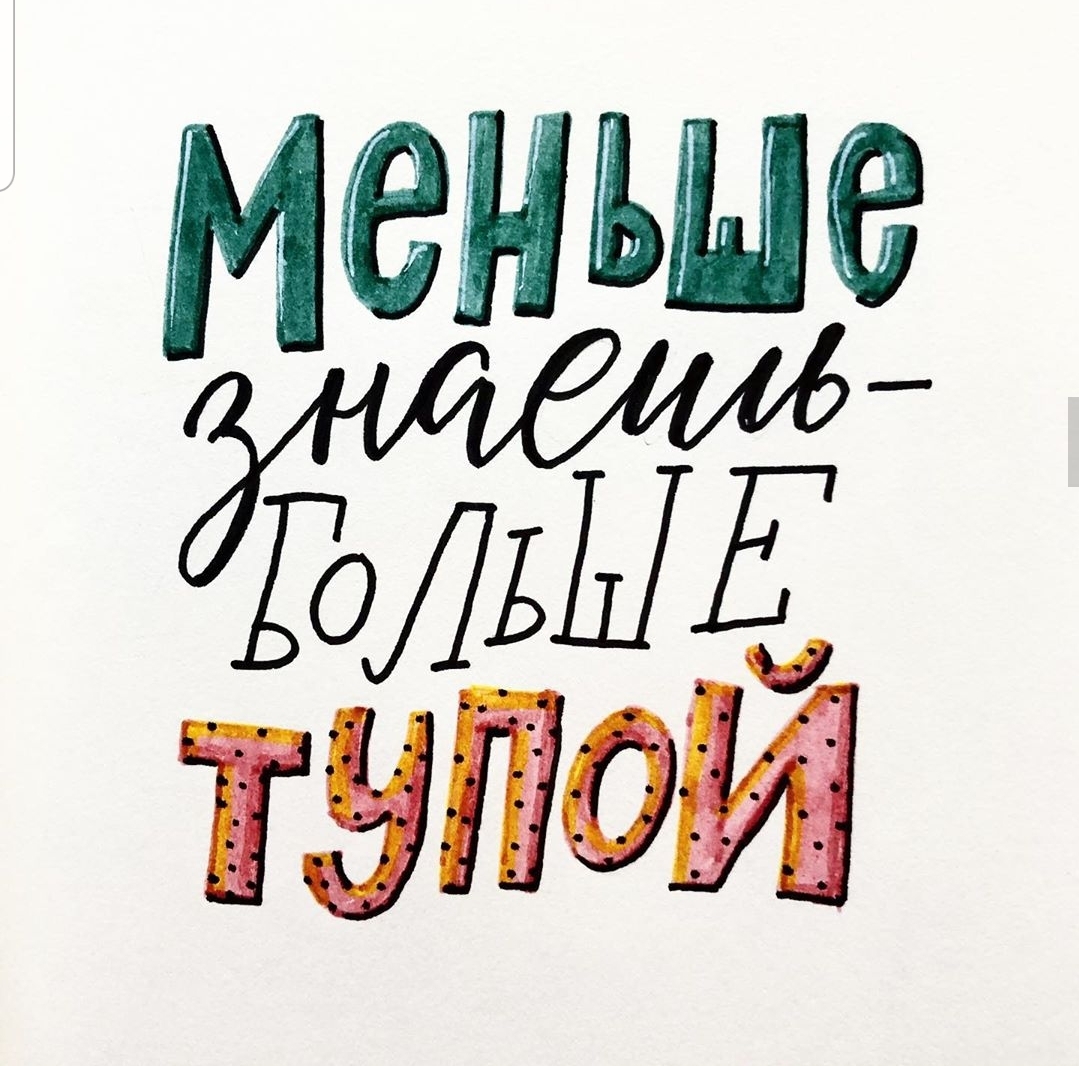 Меньше
знаешь-
БОЛЬШЕ
ТУПОЙ